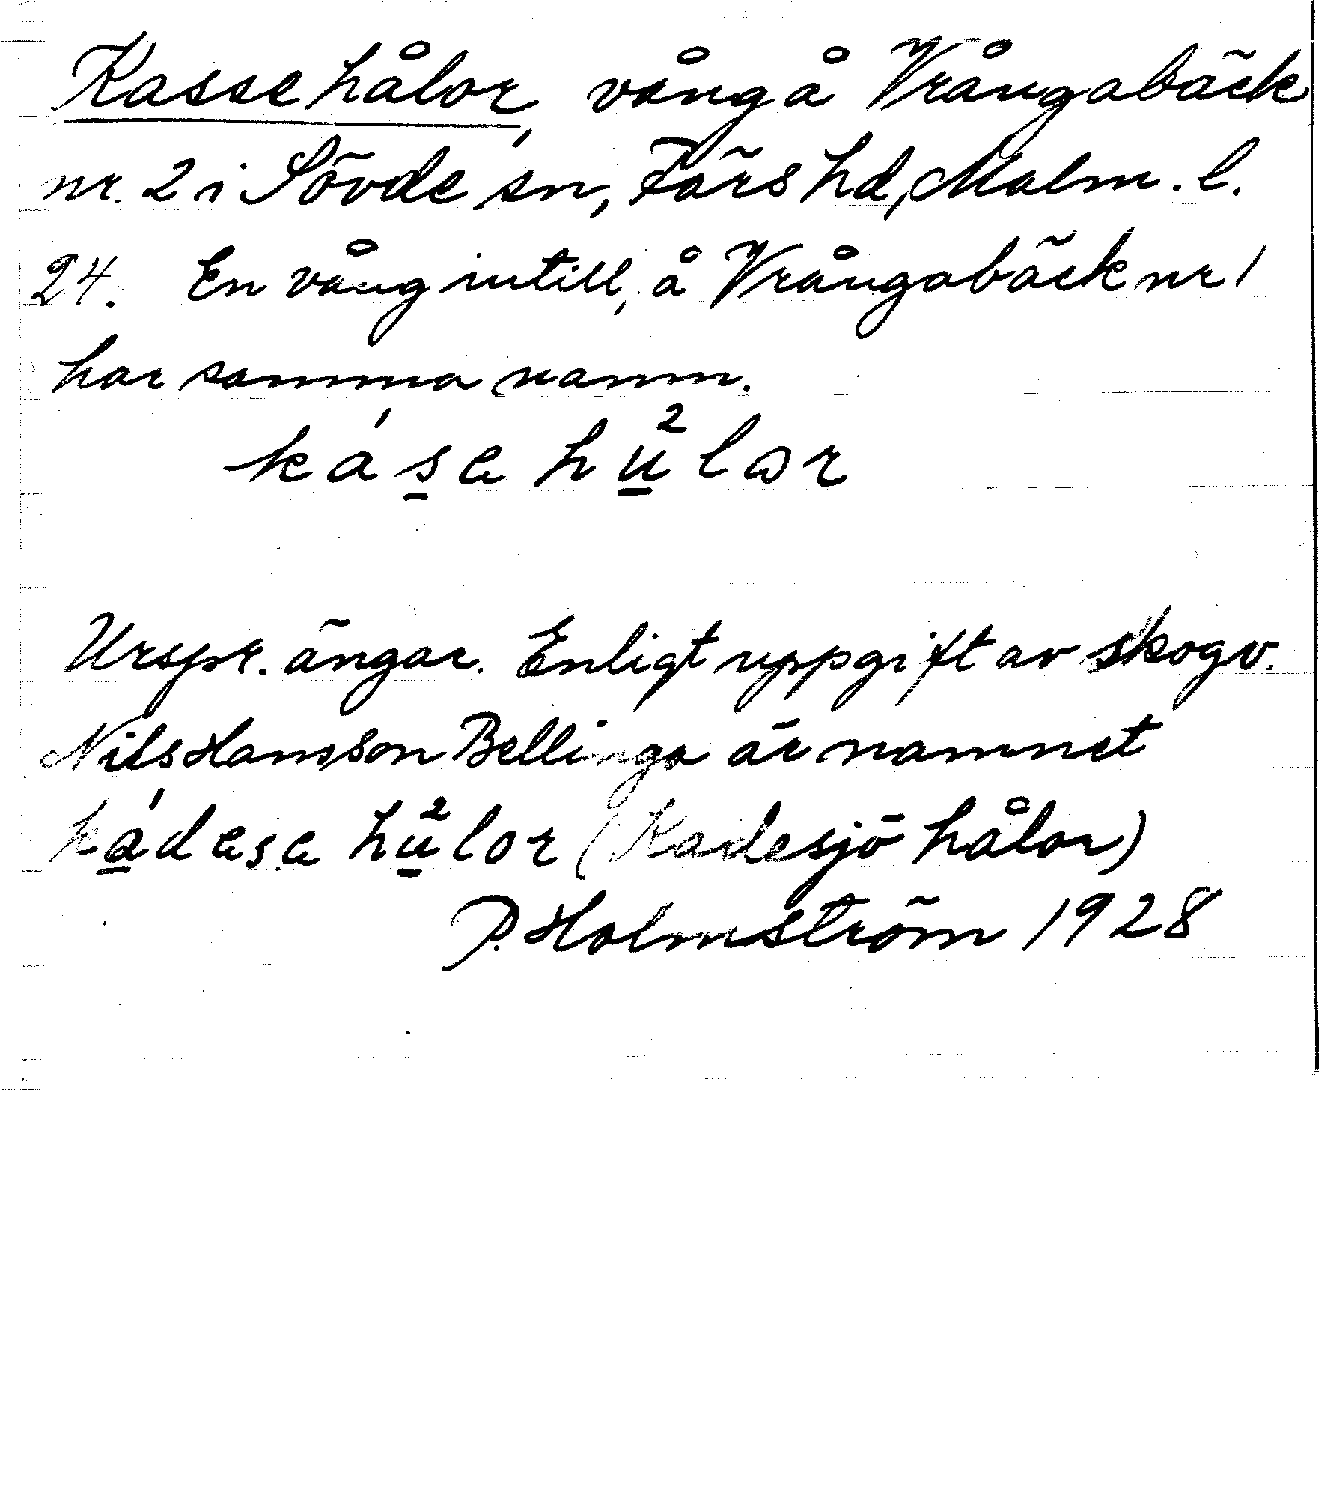 Kasse hålor, vång å Vrångabäck
nr. 2 i Sövde sn, Färs hd, Malm. l.
24. En vång intill, å Vrångabäck nr 1
har samma namn.
kásɐ hu̲²lor
Urspr. ängar. Enligt uppgift av skogv.
Nils Hansson Bellinga är namnet
kádɐsɐ hu̲²lor (Kadesjö hålor)
P. Holmström 1928